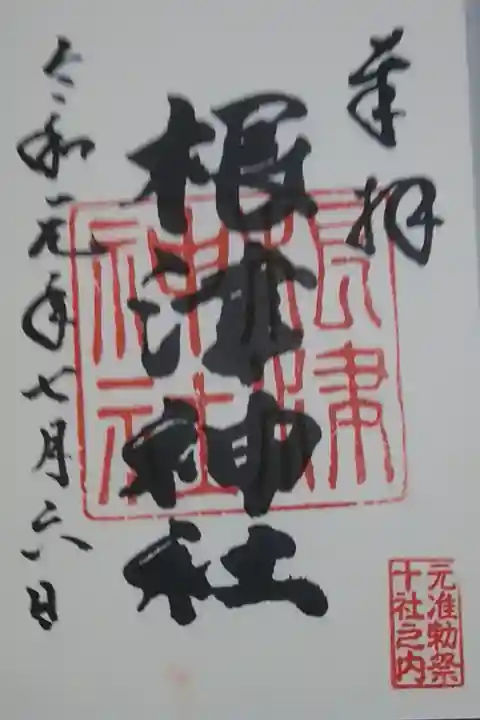 奉拝
根津神社
根津神社
令和元年七月六日
元准勅祭
十社之内